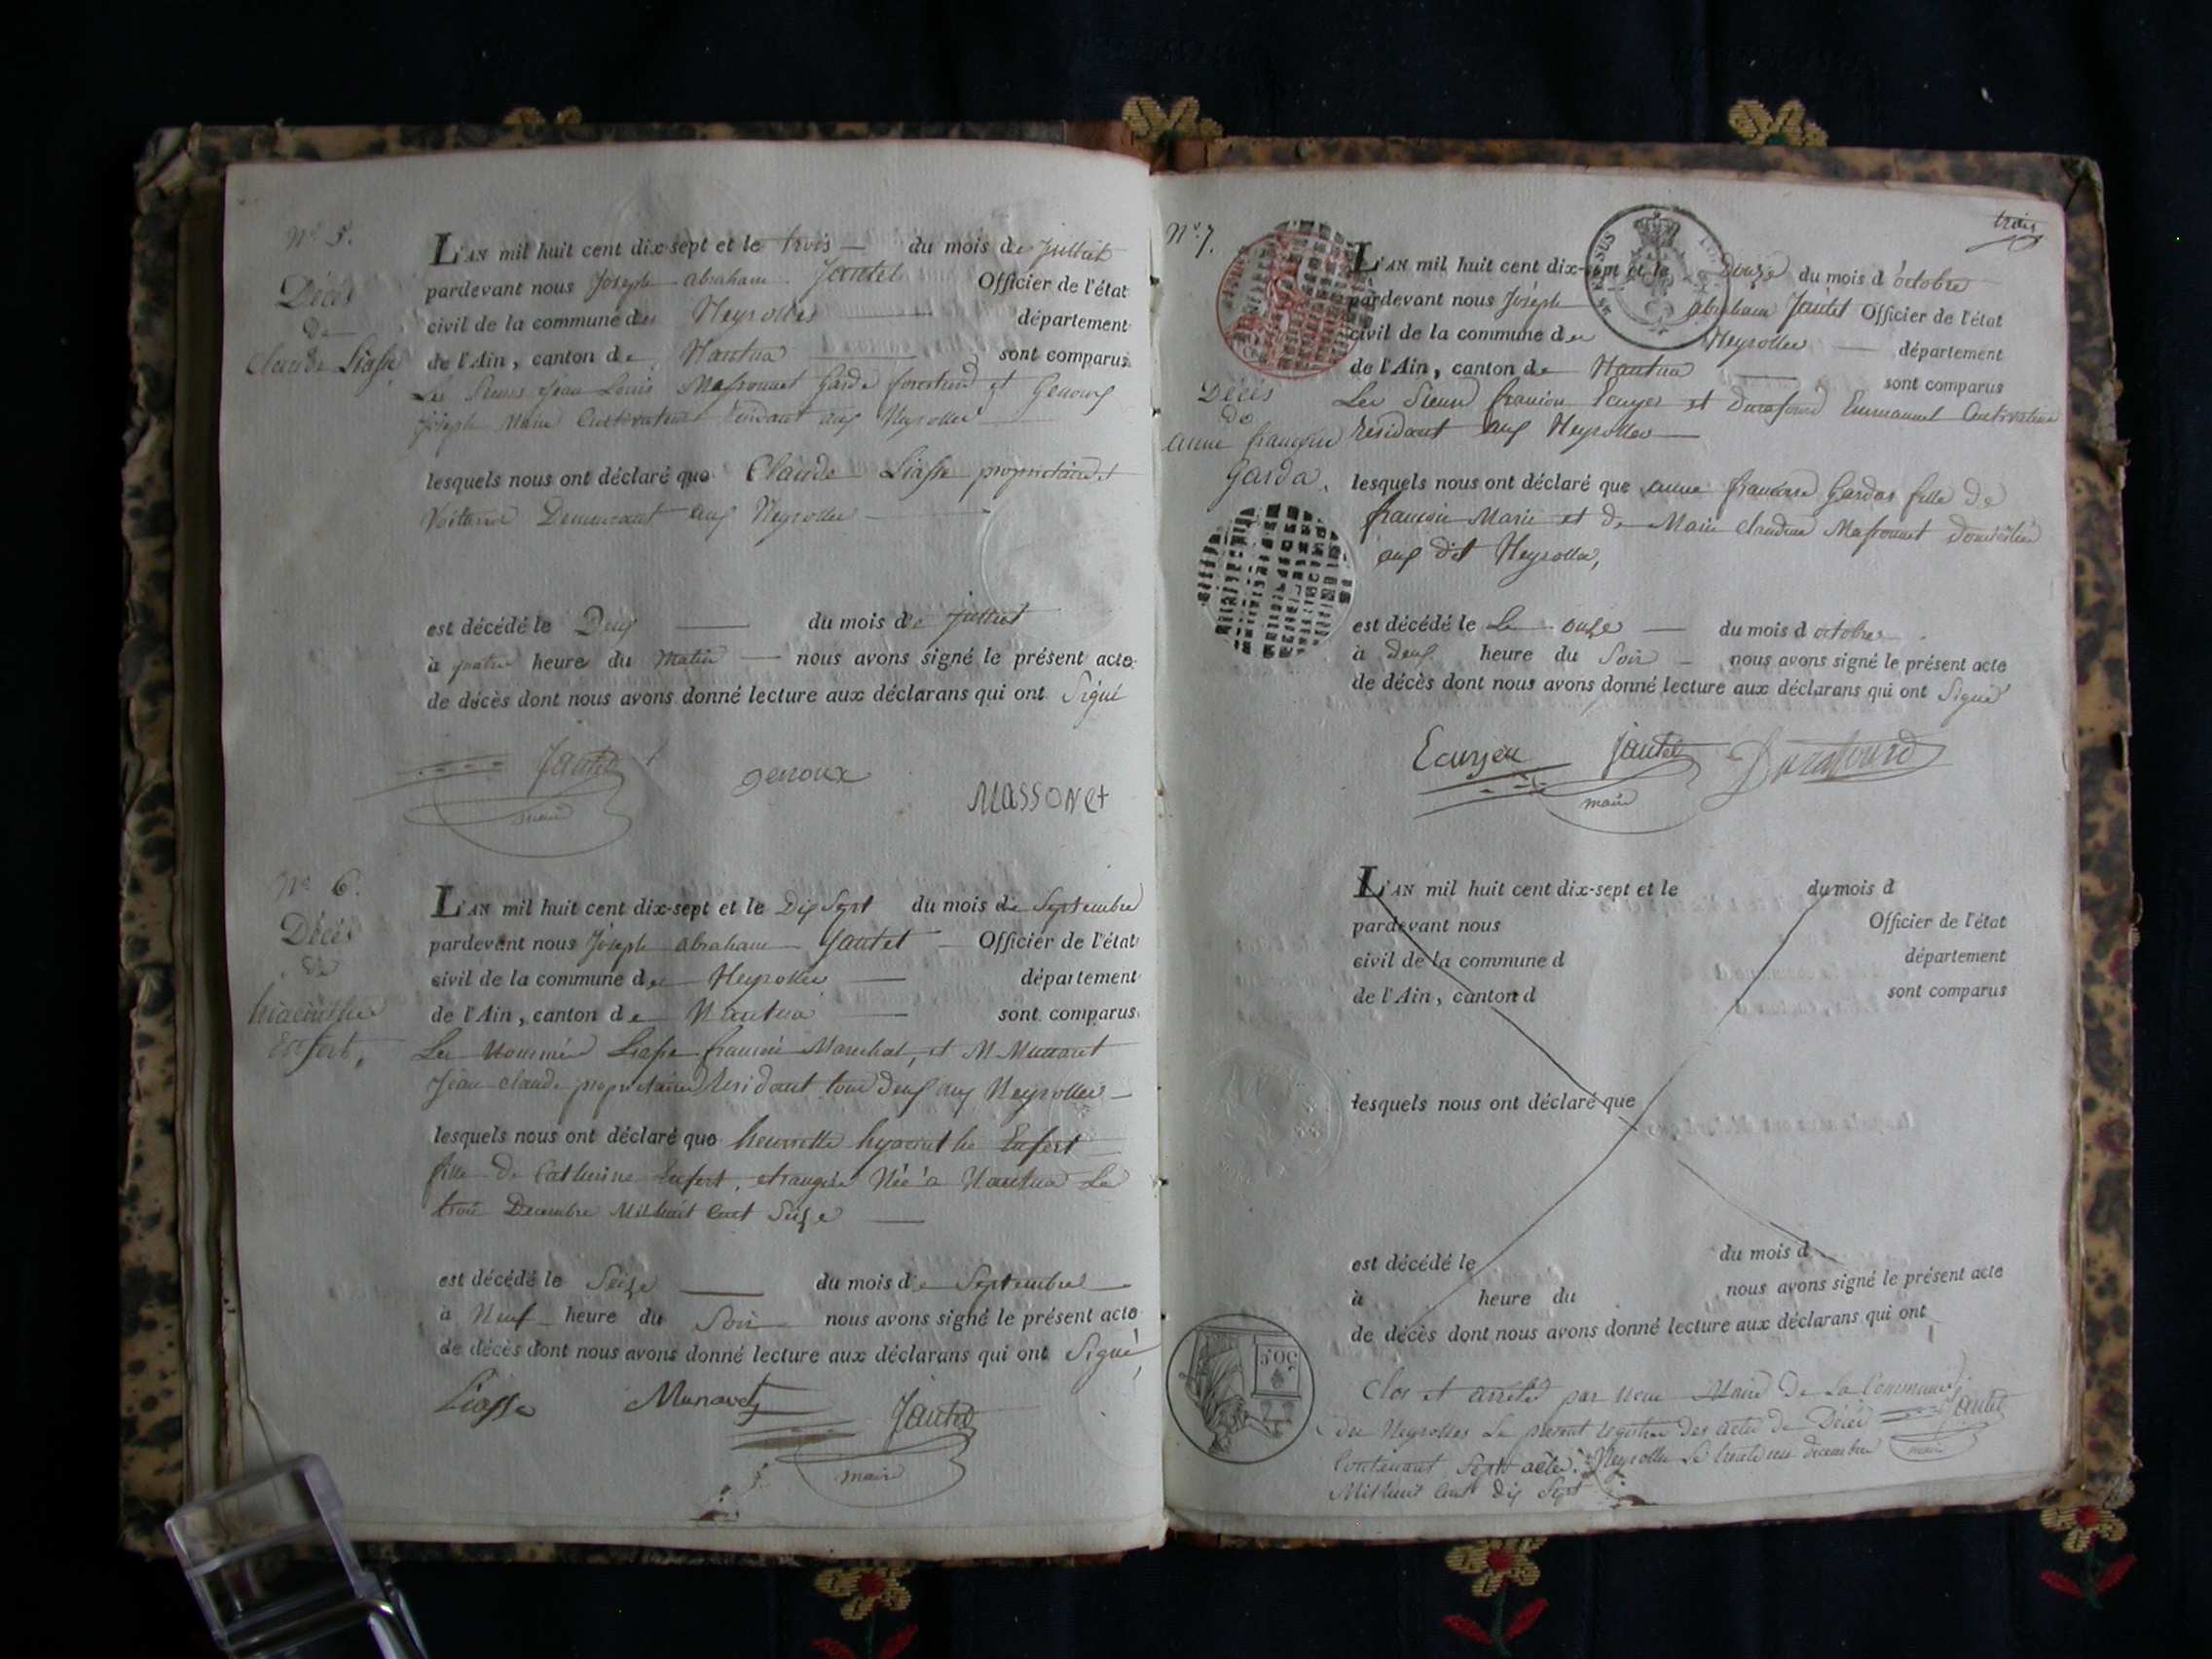 N° 5.
Décès
de
Claude Liasse
L'AN mil huit cent dix-sept et le trois du mois de juillet
pardevant nous Joseph abraham Jantet Officier de l'état
civil de la commune des Neyrolles département
de l'Ain, canton de Nantua sont comparus
Les Sieurs Jean Louis Massonnet Garde forestier et Genoux
joseph Marie Cultivateur aux Neyrolles
lesquels nous ont déclaré que Claude Liasse propriétaire et
Voiturié Demeurant aux Neyrolles
est décédé le Deux du mois de juillet
à quatre heure du Matin nous avons signé le présent acte
de décès dont nous avons donné lecture aux déclarans qui ont Signé
Jantet
genoux
MASSONet
maire
N° 6.
Décès
de
hiacinthe
Enfert,
L'AN mil huit cent dix-sept et le Dix Sept du mois de Septembre
pardevant nous Joseph abraham Jantet Officier de l'état
civil de la commune des Neyrolles département
de l'Ain, canton de Nantua sont comparus
Les Nommés Liasse francois Marechal, et Munavet
Jean claude propriétaire Residant tous Deux aux Neyrolles
lesquels nous ont déclaré que henriette hyacinthe Enfert
fille de Catherine Enfert, etrangère Née à Nantua Le
trois Decembre Mil huit Cent Seize
est décédé le Seize du mois de Septembre
à Neuf heure du Soir nous avons signé le présent acte
de décès dont nous avons donné lecture aux déclarans qui ont Signé
Liasse Munavet Jantet
maire
trois
N° 7.
Décès
de
anne francoise
Garda.
L'AN mil huit cent dix-sept et le Douze du mois d'octobre
pardevant nous Joseph abraham Jantet Officier de l'état
civil de la commune des Neyrolles département
de l'Ain, canton de Nantua sont comparus
Les Sieurs francois Ecuyer et Durafourd Emmanuel Cultivateur
Residant aux Neyrolles
lesquels nous ont déclaré que anne francoise Gardas fille de
francois Marie et de Marie claudine Massonnet Domiciliés
aux dit Neyrolles,
est décédé le Le onze du mois d octobre
à deux heure du Soir nous avons signé le présent acte
de décès dont nous avons donné lecture aux déclarans qui ont Signé
Ecuyer Jantet Durafourd
maire
L'AN mil huit cent dix-sept et le du mois d
pardevant nous Officier de l'état
civil de la commune d département
de l'Ain, canton d sont comparus
lesquels nous ont déclaré que
est décédé le du mois d
à heure du nous avons signé le présent acte
de décès dont nous avons donné lecture aux déclarans qui ont
50 C.
Clos et arrêté par nous Maire de La Commune
des Neyrolles Le présent registre des actes de Décès Jantet
Contenant Sept actes. Neyrolles Le trente un decembre maire
Mil huit Cent dix Sept